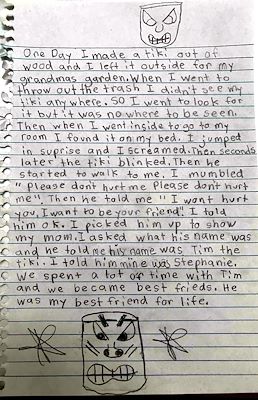 One Day I made a tiki out of
wood and I left it outside for my
grandmas garden. When I went to
throw out the trash I didn't see my
tiki any where. So I went to look for
it but it was no where to be seen.
Then when I went inside to go to my
room I found it on my bed. I jumped
in suprise and I screamed. Then seconds
later the tiki blinked. Then he
started to walk to me. I mumbled
"Please don't hurt me Please don't hurt
me". Then he told me "I wont hurt
you, I want to be your friend". I told
him ok. I picked him up to show
my mom. I asked what his name was
and he told me his name was Tim the
tiki. I told him mine was Stephanie.
We spent a lot of time with Tim
and we became best frieds. He
was my best friend for life.